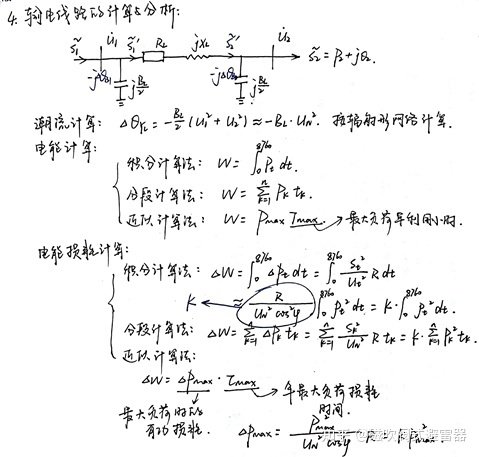 4. 输电线路的计算与分析:
S̃₁ U̇₁ S̃₁' R_L jX_L S̃₂' U̇₂ S̃₂ = P₂+jQ₂.
-jΔQ_{B1} j B_L/2 -jΔQ_{B2} j B_L/2
潮流计算: ΔQ_{YL} = -B_L/2 (U₁²+U₂²) ≈ -B_L·U_N². 按辐射形网络计算.
电能计算:
积分计算法: W = ∫₀^{8760} P_t dt.
分段计算法: W = Σ_{k=1}^{n} P_k t_k.
近似计算法: W = P_max T_max. → 最大负荷年利用小时.
电能损耗计算:
积分计算法: ΔW = ∫₀^{8760} ΔP_t dt = ∫₀^{8760} S_t²/U_t² R dt
K ← ≈ R/(U_N² cos²φ) ∫₀^{8760} P_t² dt = K·∫₀^{8760} P_t² dt.
分段计算法: ΔW = Σ_{k=1}^{n} ΔP_k t_k = Σ_{k=1}^{n} S_k²/U_N² R t_k = K·Σ_{k=1}^{n} P_k² t_k.
近似计算法:
ΔW = ΔP_max · τ_max → 年最大负荷损耗时间.
最大负荷时的有功损耗.
ΔP_max = P_max²/(U_N² cos²φ) R = K·P_max².
知乎